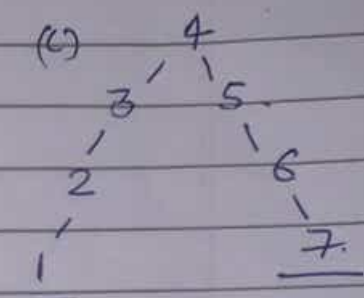 (c) 4
3 5
2 6
1 7.